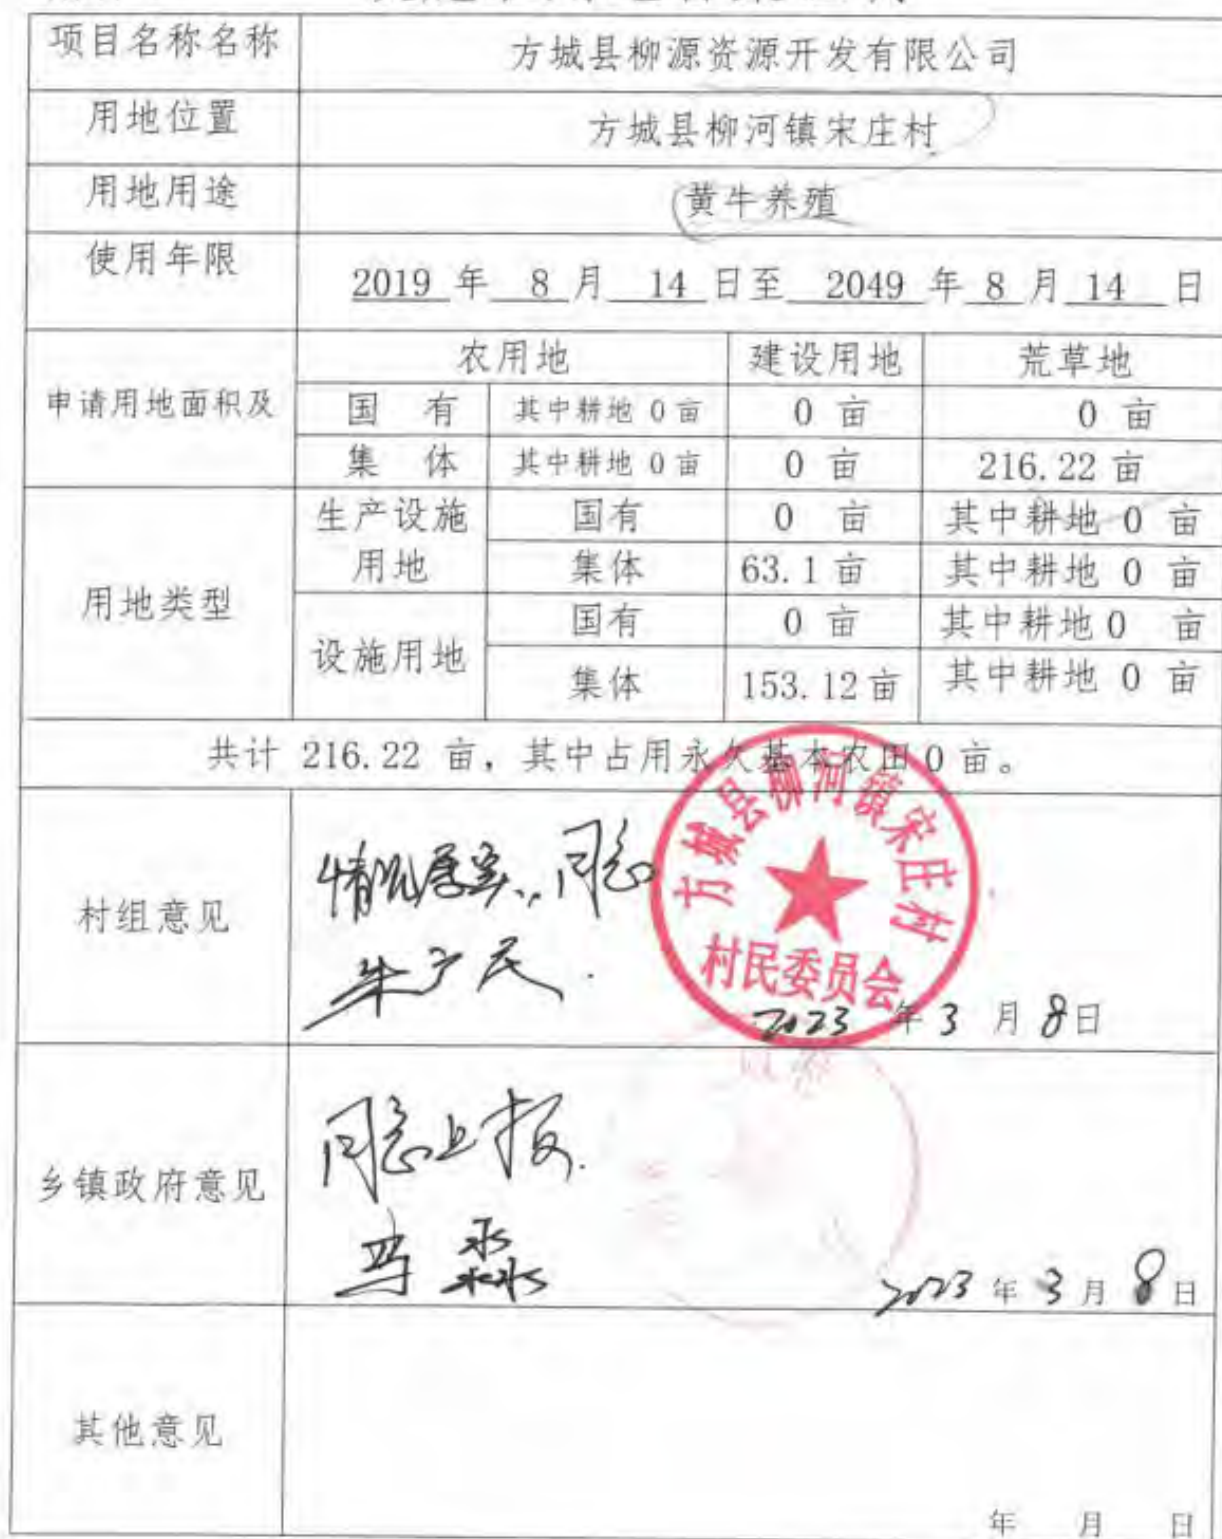 项目名称名称 方城县柳源资源开发有限公司
用地位置 方城县柳河镇宋庄村
用地用途 黄牛养殖
使用年限 2019 年 8 月 14 日至 2049 年 8 月 14 日
申请用地面积及 农用地 建设用地 荒草地
国 有 其中耕地 0 亩 0 亩 0 亩
集 体 其中耕地 0 亩 0 亩 216.22 亩
用地类型 生产设施用地 国有 0 亩 其中耕地 0 亩
集体 63.1 亩 其中耕地 0 亩
设施用地 国有 0 亩 其中耕地 0 亩
集体 153.12 亩 其中耕地 0 亩
共计 216.22 亩，其中占用永久基本农田 0 亩。
村组意见
情况属实，同意
方城县柳河镇宋庄村
村民委员会
2023 年 3 月 8 日
乡镇政府意见
同意上报.
冯淼
2023 年 3 月 8 日
其他意见
年 月 日